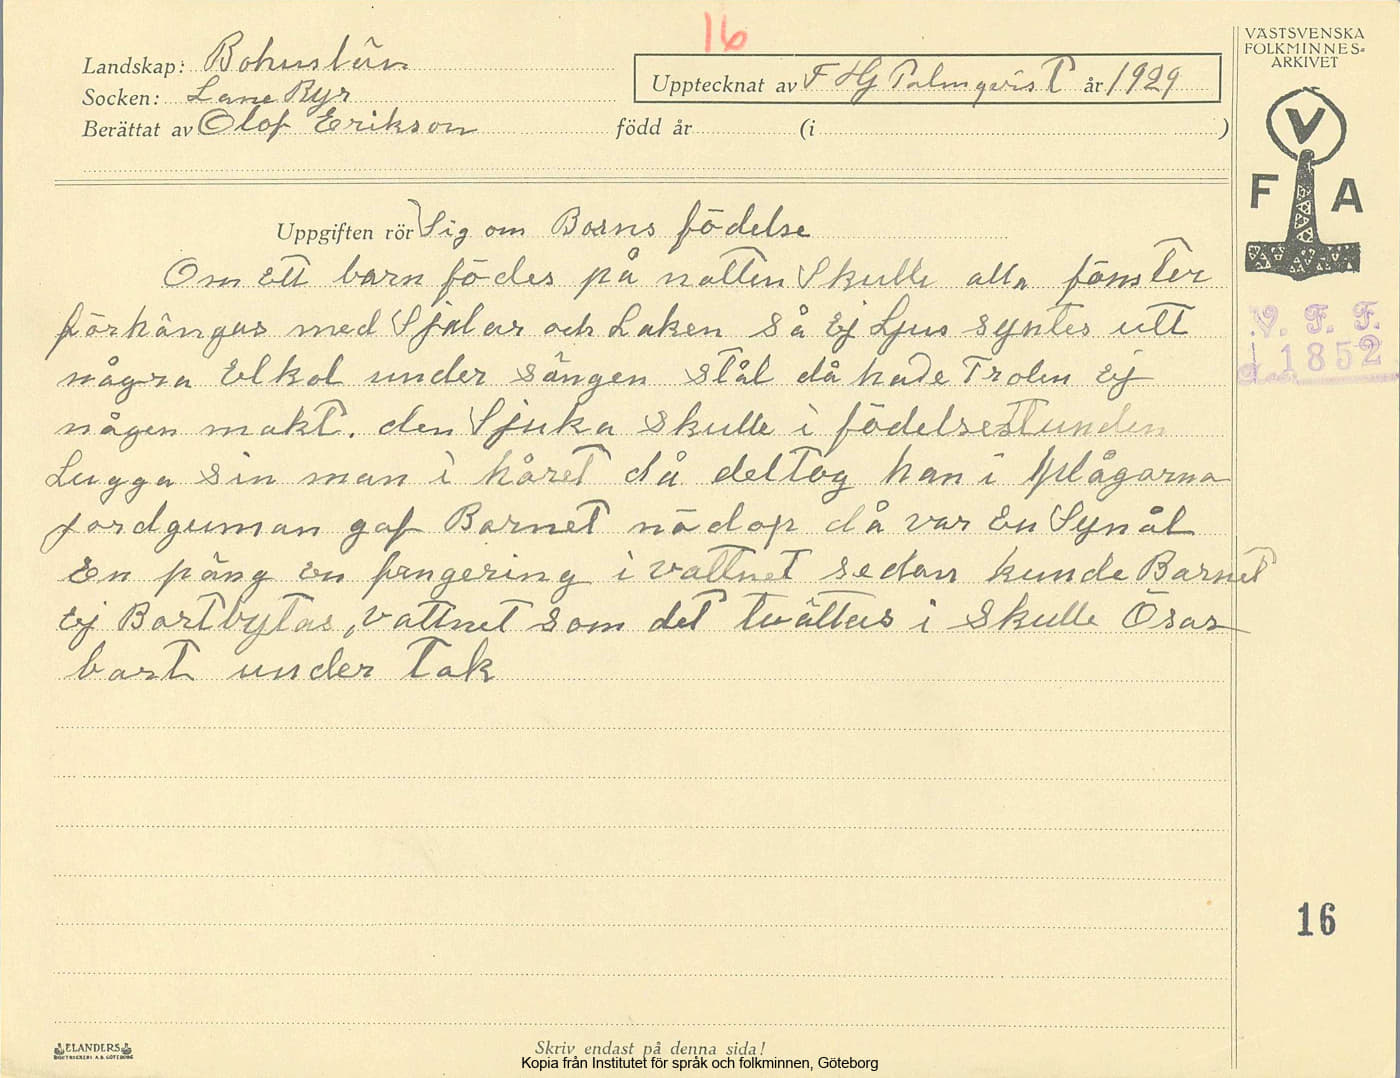 16
Landskap: Bohuslän
Socken: Lane Ryr
Berättat av Olof Erikson
Upptecknat av F Hj Palmqvist år 1929
född år (i )
VÄSTSVENSKA
FOLKMINNES-
ARKIVET
V
F A
Uppgiften rör Sig om Barns födelse
Om Ett barn födes på natten Skulle alla fönster
förhängas med Sjalar och Laken så Ej Ljus syntes utt
några Elkol under sängen stål då hade Trolen Ej
någen makt. den Sjuka Skulle i födelsestunden
Lugga sin man i håret då deltog han i plågarna
jordguman gaf Barnet nödop då var En Synål
En päng En fengering i vattnet sedan kunde Barnet
Ej Bortbytas, vattnet som det tvättas i Skulle Ösas
bort under Tak
V. F. F.
1852
16
ELANDERS
BOKTRYCKERI A.B. GÖTEBORG
Skriv endast på denna sida!
Kopia från Institutet för språk och folkminnen, Göteborg